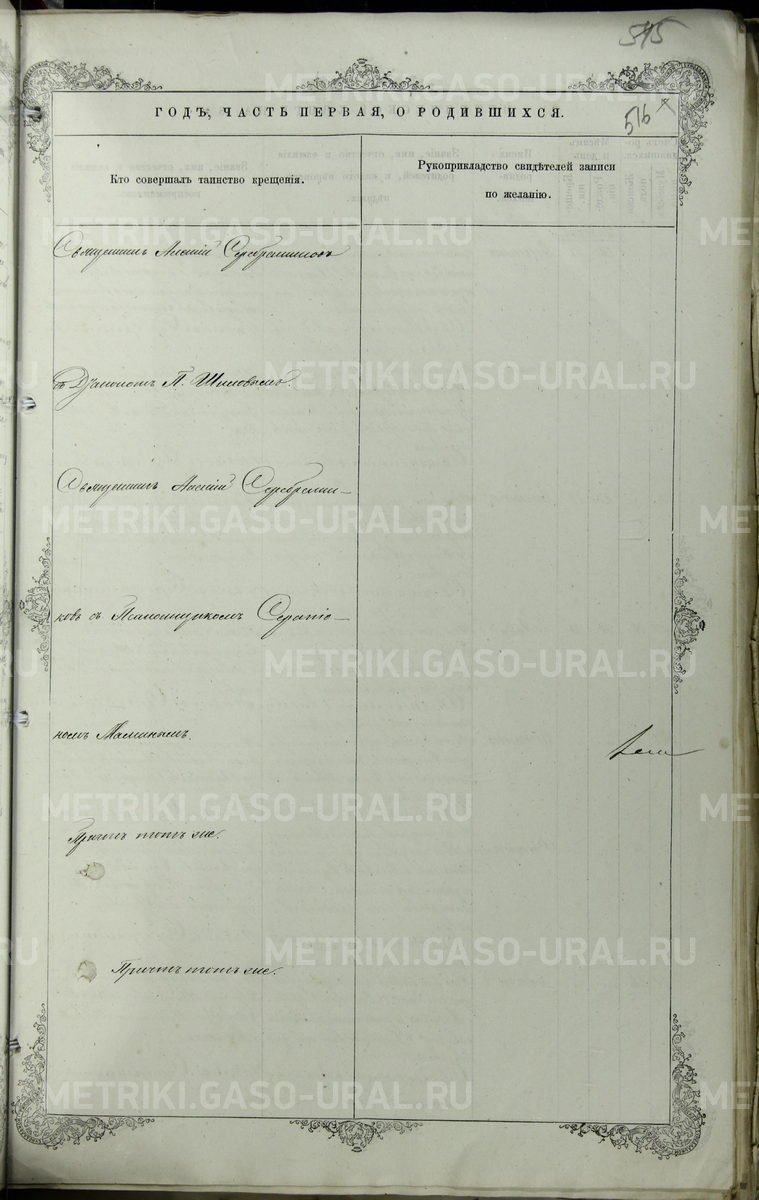 545
516
ГОДЪ, ЧАСТЬ ПЕРВАЯ, О РОДИВШИХСЯ.
Кто совершалъ таинство крещенія.
Рукоприкладство свидѣтелей записи
по желанію.
Священникъ Алексій Серебренниковъ
съ Діакономъ П. Шиловымъ.
Священникъ Алексій Серебренни-
ковъ съ Псаломщикомъ Серапіо-
номъ Маминымъ.
Причтъ тотъ же.
Причтъ тотъ же.
METRIKI.GASO-URAL.RU